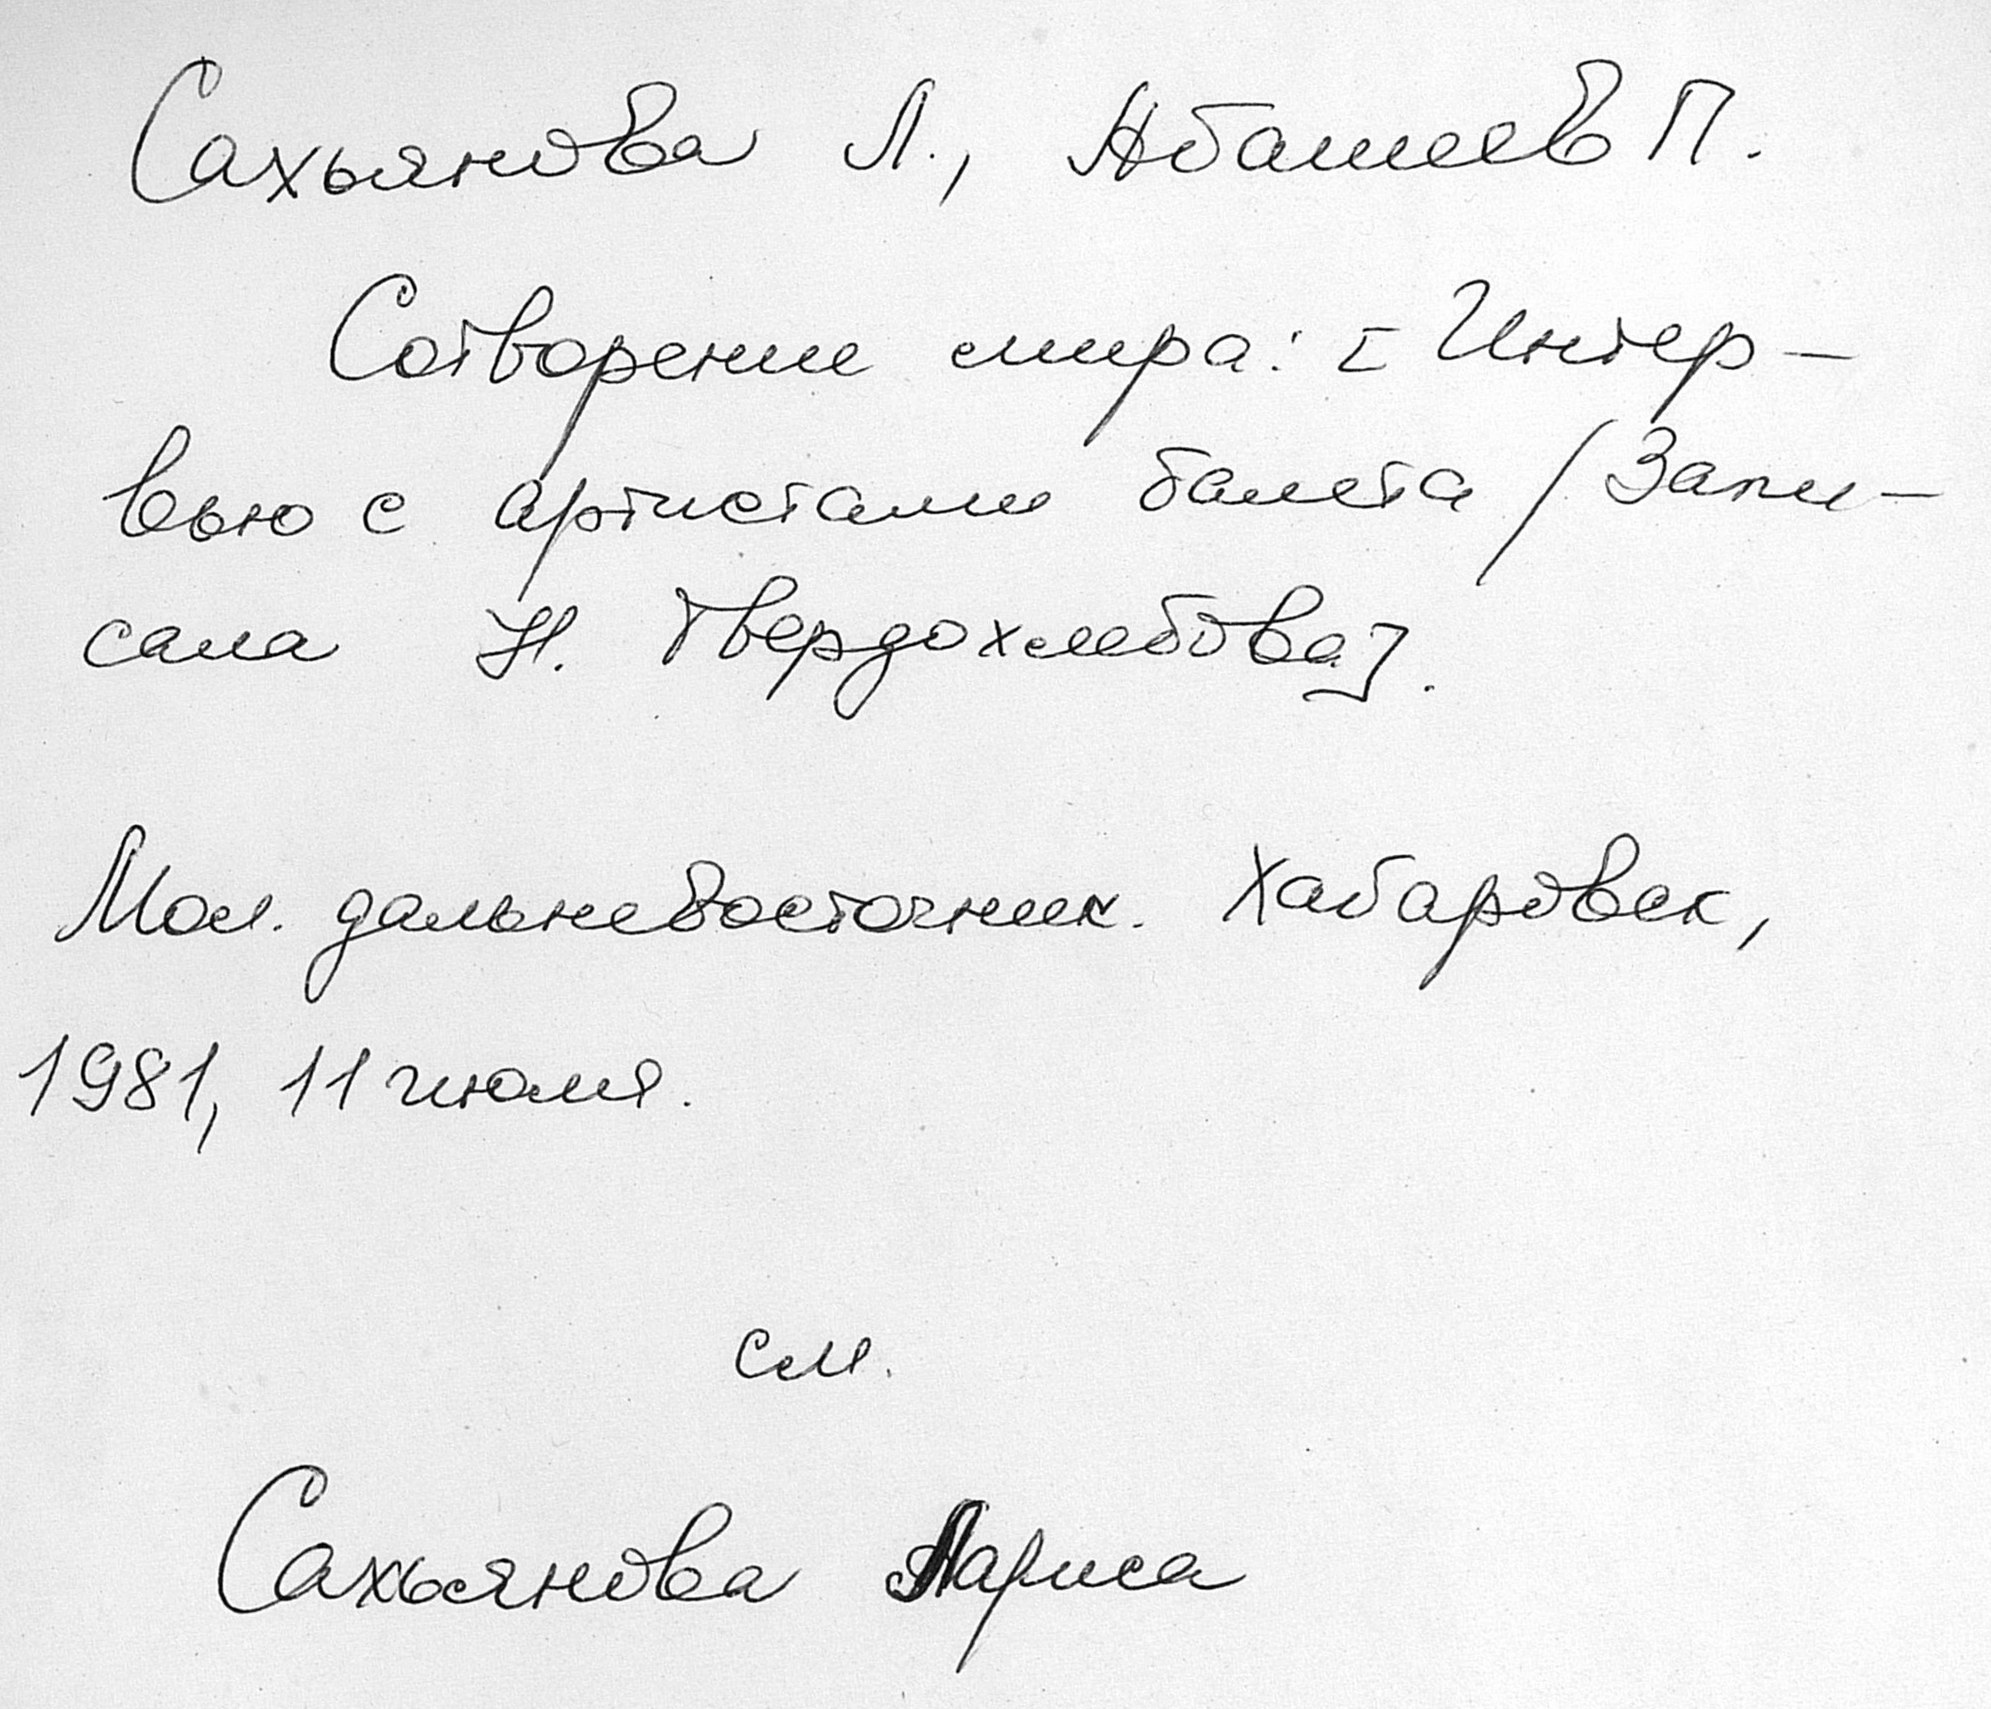 Сахьянова Л., Абашеев П.
Сотворение мира: [Интер-
вью с артистами балета / Запи-
сала Н. Твердохлебова].
Мол. дальневосточник. Хабаровск,
1981, 11 июля.
см.
Сахьянова Лариса